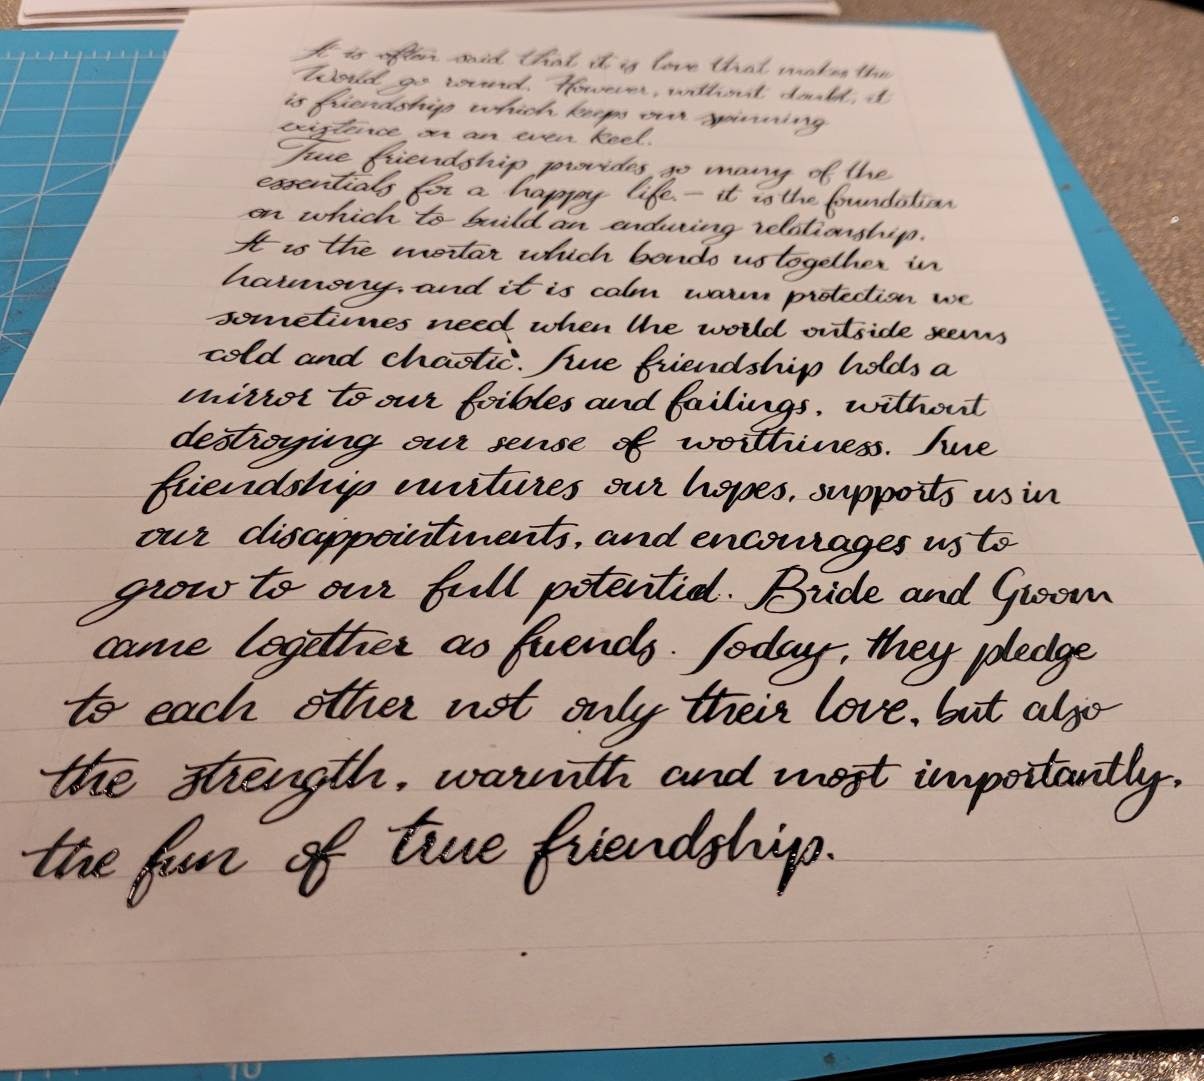 It is often said that it is love that makes the
World go round. However, without doubt, it
is friendship which keeps our spinning
existence on an even keel.
True friendship provides so many of the
essentials for a happy life. - it is the foundation
on which to build an enduring relationship.
It is the mortar which bonds us together in
harmony. and it is calm warm protection we
sometimes need when the world outside seems
cold and chaotic. True friendship holds a
mirror to our foibles and failings, without
destroying our sense of worthiness. True
friendship nurtures our hopes, supports us in
our disappointments, and encourages us to
grow to our full potential. Bride and Groom
came together as friends. Today, they pledge
to each other not only their love, but also
the strength, warmth and most importantly,
the fun of true friendship.
10